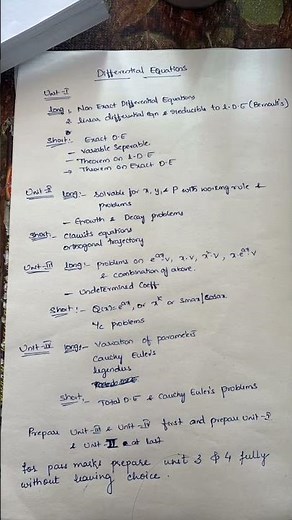 Differential Equations
Unit-I
Long :- Non Exact Differential Equations
& linear differential eqn & reducible to L.D.E (Bernouli's)
Short:- Exact D.E
- Variable Seperable.
- Theorem on L.D.E
→ Theorem on Exact D.E
Unit-II Long:- Solvable for x, y, & P with working rule &
problems
- Growth & Decay problems
Short:- Clauits equations
orthogonal trajectory
Unit-III Long:- problems on e^ax v, x.v, x².v , x.e^ax.v
& combination of above.
- Undetermined Coeff-
Short:- Q(x)=e^ax, or x^k or sinax/cosax
y_c problems
Unit-IV Long:- Variation of parameters
Cauchy Euler's
legendus
Short:- Total D.E & Cauchy Euler's problems
Prepare Unit-III & Unit-IV first and prepare Unit-I
& Unit II at last
for pass marks prepare unit 3 & 4 fully
without leaving choice.